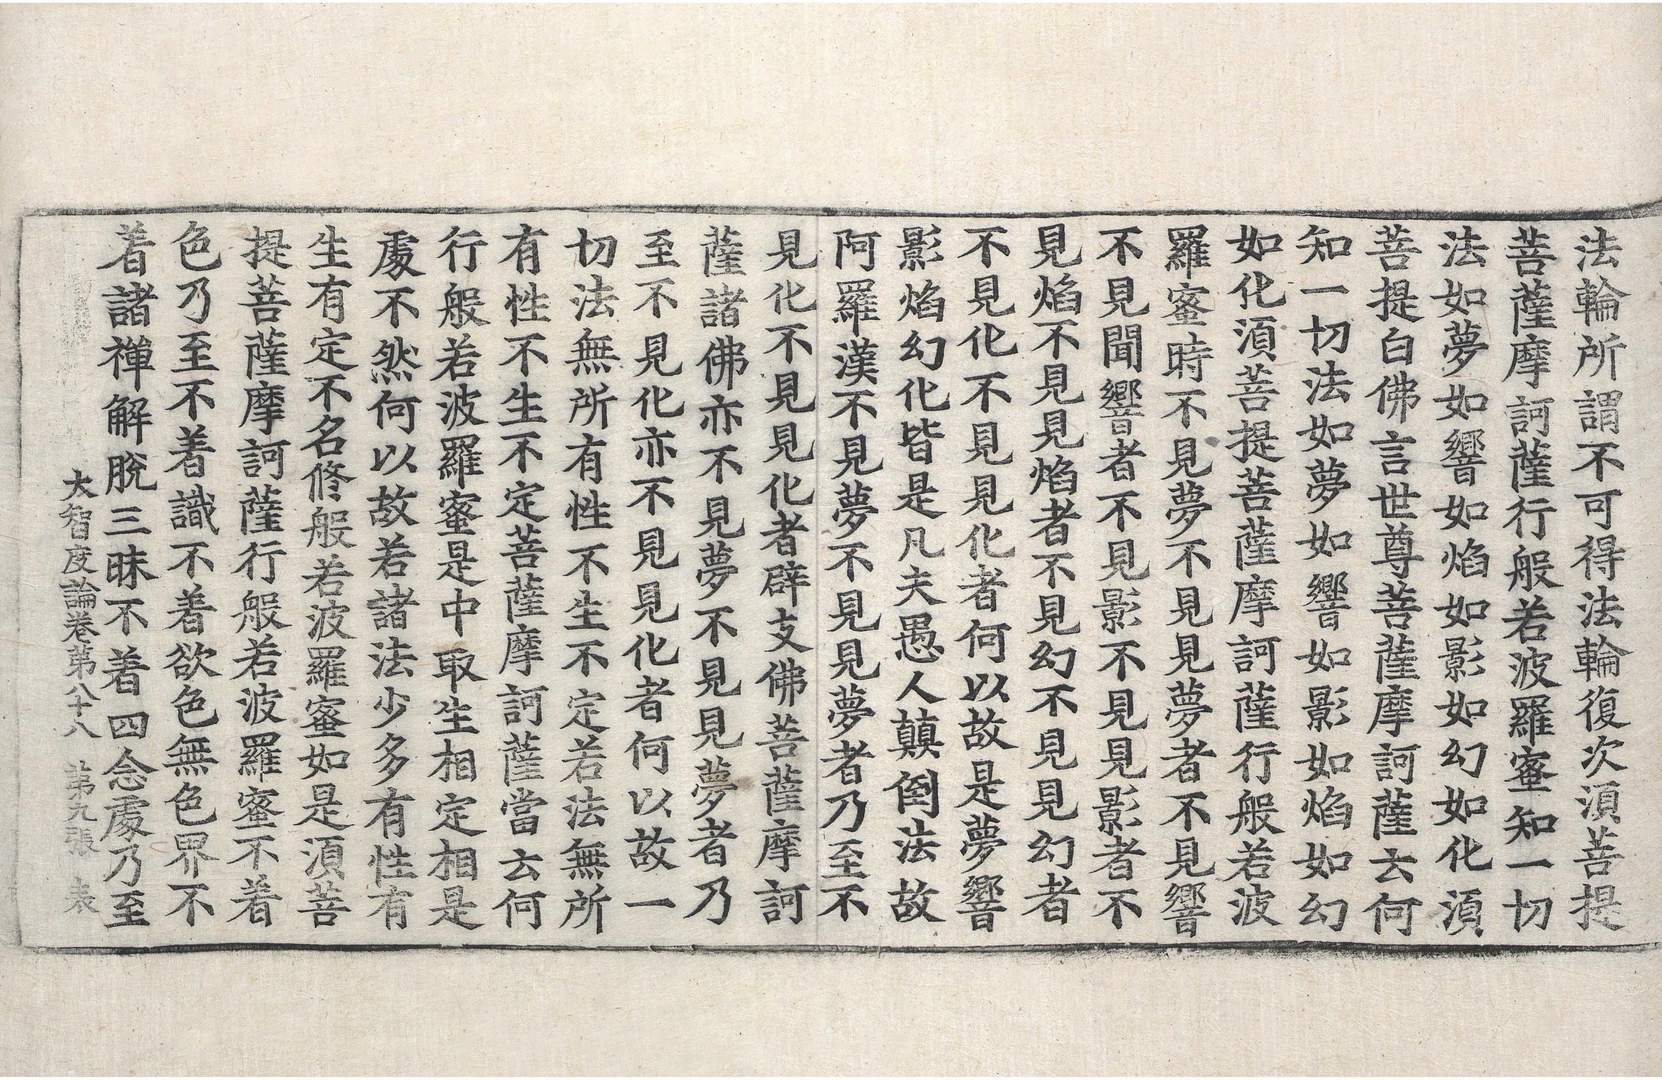 法輪所謂不可得法輪復次湏菩提
菩薩摩訶薩行般若波羅蜜知一切
法如夢如響如焰如影如幻如化湏
菩提白佛言世尊菩薩摩訶薩云何
知一切法如夢如響如影如焰如幻
如化湏菩提菩薩摩訶薩行般若波
羅蜜時不見夢不見見夢者不見響
不見聞響者不見影不見見影者不
見焰不見見焰者不見幻不見見幻者
不見化不見見化者何以故是夢響
影焰幻化皆是凡夫愚人顛倒法故
阿羅漢不見夢不見見夢者乃至不
見化不見見化者辟支佛菩薩摩訶
薩諸佛亦不見夢不見見夢者乃
至不見化亦不見見化者何以故一
切法無所有性不生不定若法無所
有性不生不定菩薩摩訶薩當云何
行般若波羅蜜是中取生相定相是
處不然何以故若諸法少多有性有
生有定不名修般若波羅蜜如是湏菩
提菩薩摩訶薩行般若波羅蜜不着
色乃至不着識不着欲色無色界不
着諸禪解脫三昧不着四念處乃至
大智度論卷第八十八 第九張 表